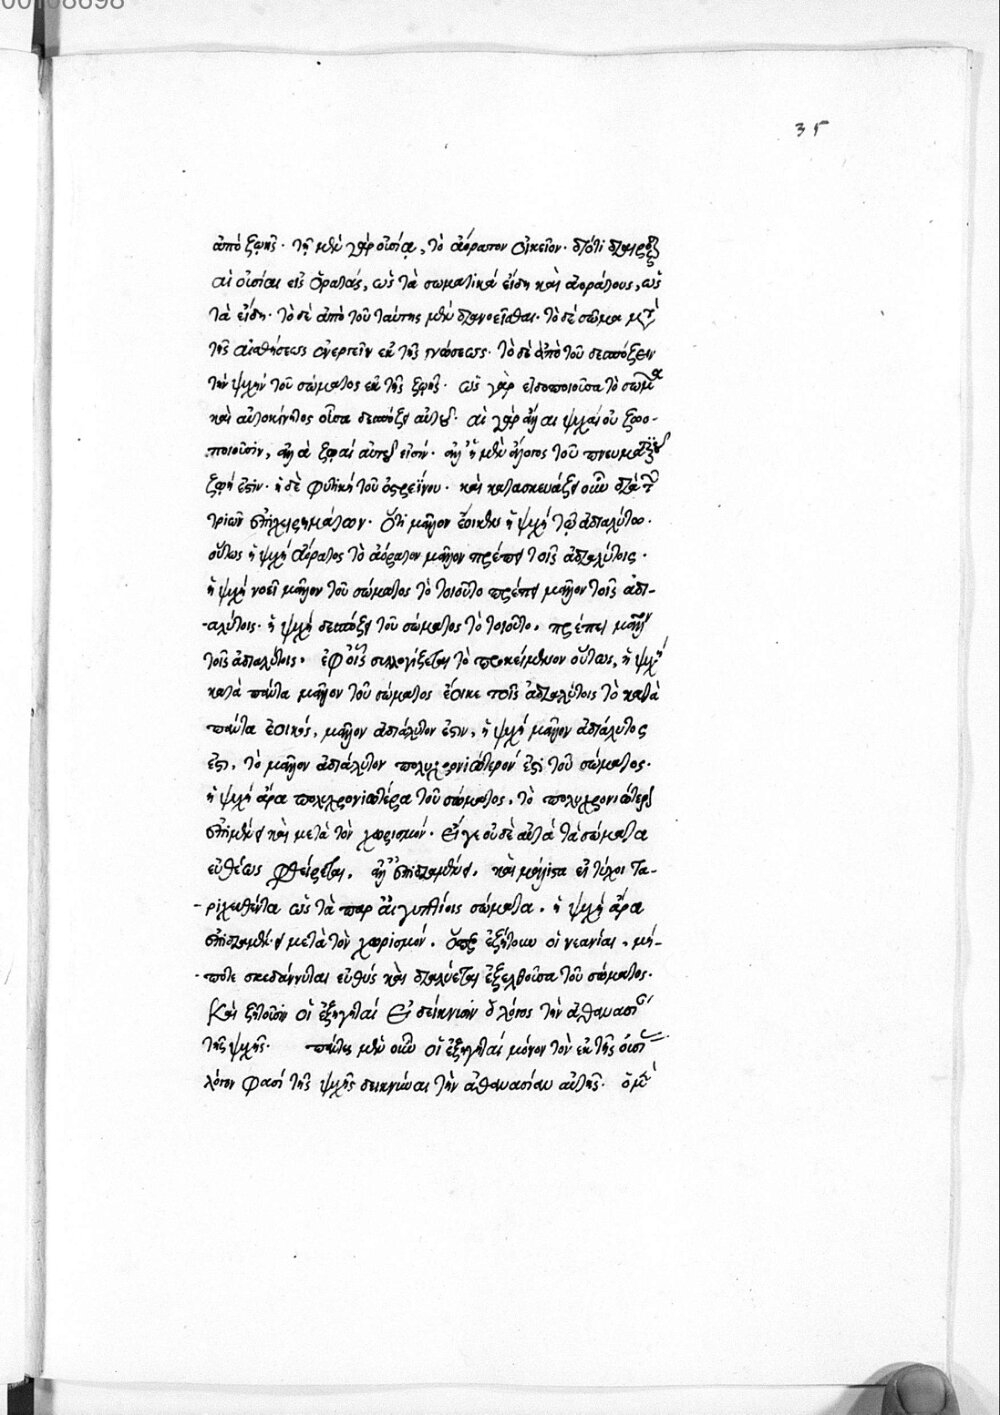 35
ἀπὸ ζωῆς. τῇ μὲν γὰρ οὐσίᾳ, τὸ ἀόρατον οἰκεῖον. διότι διαιροῦνται
αἱ οὐσίαι εἰς ὁρατάς, ὡς τὰ σωματικὰ εἴδη καὶ ἀοράτους, ὡς
τὰ εἴδη. τὸ δὲ ἀπὸ τοῦ ταύτης μὲν διανοεῖσθαι. τὸ δὲ σῶμα μετὰ
τῆς αἰσθήσεως ἐνεργεῖν ἐκ τῆς γνώσεως. τὸ δὲ ἀπὸ τοῦ δεσπόζειν
τὴν ψυχὴν τοῦ σώματος ἐκ τῆς ζωῆς. ὡς γὰρ εἰδοποιοῦσα τὸ σῶμα
καὶ αὐτοκίνητος οὖσα δεσπόζει αὐτοῦ. αἱ γὰρ ἄλλαι ψυχαὶ οὐ ζωο-
ποιοῦσιν, ἀλλὰ ζωαὶ αὐτοῦ εἰσίν. ἀλλ' ἡ μὲν ἄλογος τοῦ πνευματικοῦ
ζωή ἐστιν. ἡ δὲ φυτικὴ τοῦ ὀστρεΐνου. καὶ κατασκευάζει οὖν διὰ τῶν
τριῶν ἐπιχειρημάτων. ὅτι μᾶλλον ἔοικεν ἡ ψυχὴ τῷ ἀδιαλύτῳ.
οὕτως ἡ ψυχὴ ἀόρατος τὸ ἀόρατον μᾶλλον πρέπει τοῖς ἀδιαλύτοις.
ἡ ψυχὴ νοεῖ μᾶλλον τοῦ σώματος τὸ τοιοῦτο πρέπει μᾶλλον τοῖς ἀδι-
-αλύτοις. ἡ ψυχὴ δεσπόζει τοῦ σώματος τὸ τοιοῦτο. πρέπει μᾶλλον
τοῖς ἀδιαλύτοις. ἐφ' οἷς συλλογίζεται τὸ προκείμενον οὕτως, ἡ ψυχὴ
κατὰ πάντα μᾶλλον τοῦ σώματος ἔοικε τοῖς ἀδιαλύτοις τὸ κατὰ
πάντα ἐοικός, μᾶλλον ἀδιάλυτον ἐστιν, ἡ ψυχὴ μᾶλλον ἀδιάλυτος
ἐστι, τὸ μᾶλλον ἀδιάλυτον πολυχρονιώτερόν ἐστι τοῦ σώματος.
ἡ ψυχὴ ἄρα πολυχρονιωτέρα τοῦ σώματος, τὸ πολυχρονιώτερον
ἐπιμένει καὶ μετὰ τὸν χωρισμόν. εἴγε οὐδὲ αὐτὰ τὰ σώματα
εὐθέως φθείρεται, ἀλλ' ἐπιδιαμένει. καὶ μάλιστα εἰ τύχοι τα-
-ριχευθέντα ὡς τὰ παρ' αἰγυπτίοις σώματα. ἡ ψυχὴ ἄρα
ἐπιδιαμένει μετὰ τὸν χωρισμόν. ὅπερ ἐζήτουν οἱ νεανίαι, μή-
-ποτε σκεδάννυται εὐθὺς καὶ διαλύεται ἐξελθοῦσα τοῦ σώματος.
Καὶ ζητοῦσιν οἱ ἐξηγηταὶ εἰ δείκνυσιν ὁ λόγος τὴν ἀθανασίαν
τῆς ψυχῆς. πάντες μὲν οὖν οἱ ἐξηγηταὶ μόνον τὸν ἐκ τῆς οὐσίας
λόγον φασὶ τῆς ψυχῆς δεικνύναι τὴν ἀθανασίαν αὐτῆς. ὁ μὲν